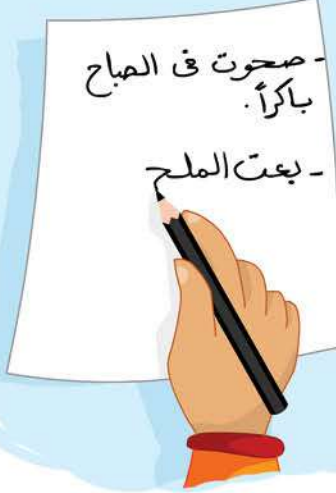 - صحوت فى الصباح
باكراً.
- بعت الملح